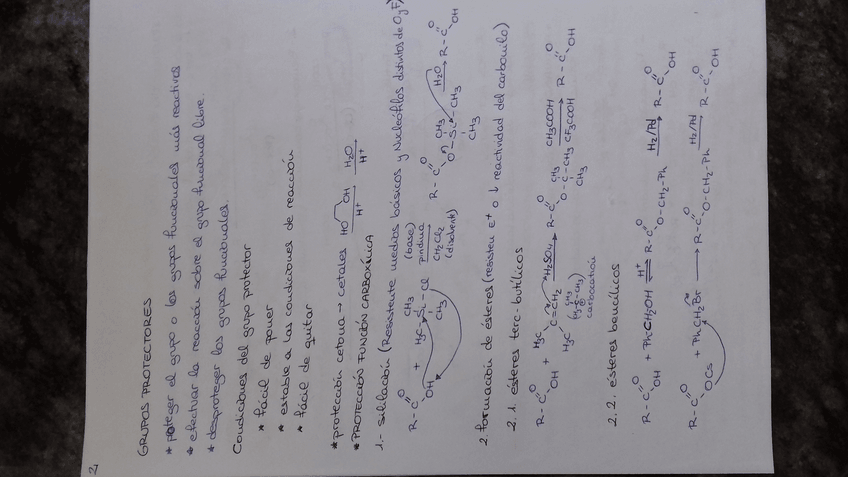 2
GRUPOS PROTECTORES
* proteger el grupo o los grupos funcionales más reactivos
* efectuar la reacción sobre el grupo funcional libre.
* desproteger los grupos funcionales.
Condiciones del grupo protector
* fácil de poner
* estable a las condiciones de reacción
* fácil de quitar
* protección cetona → cetales HO OH H+ H2O H+
* PROTECCIÓN FUNCIÓN CARBOXÍLICA
1.- sililación (Resistente medios básicos y Nucleófilos distintos de O y F)
R-C O OH + H3C-Si-Cl CH3 CH3 (base) piridina CH2Cl2 (disolvente) R-C O O-Si-CH3 CH3 CH3 H2O R-C O OH
2. formación de ésteres (resisten E+ o ↓ reactividad del carbonilo)
2.1. ésteres terc-butílicos
R-C O OH + H3C H3C C=CH2 H2SO4 R-C O O-C-CH3 CH3 CH3 CH3COOH CF3COOH R-C O OH
carbocatión
2.2. ésteres bencílicos
R-C O OH + PhCH2OH H+ R-C O O-CH2-Ph H2/Pd R-C O OH
R-C O OCs + PhCH2Br → R-C O O-CH2-Ph H2/Pd R-C O OH